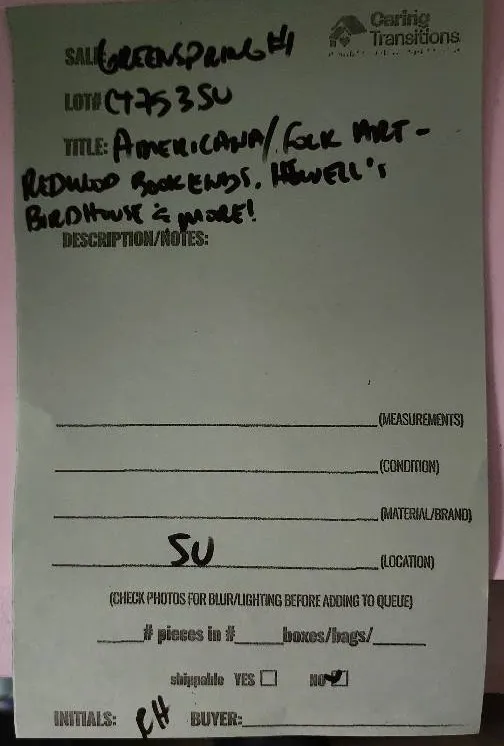 Caring
Transitions
SALE GREENSPRING #1
LOT# CT753SU
TITLE: AMERICANA/FOLK ART -
REDWOOD BOOKENDS, HOWELL'S
BIRDHOUSE & MORE!
DESCRIPTION/NOTES:
(MEASUREMENTS)
(CONDITION)
(MATERIAL/BRAND)
SU (LOCATION)
(CHECK PHOTOS FOR BLUR/LIGHTING BEFORE ADDING TO QUEUE)
____# pieces in #____boxes/bags/____
shippable YES ☐ NO ☑
INITIALS: RH BUYER: